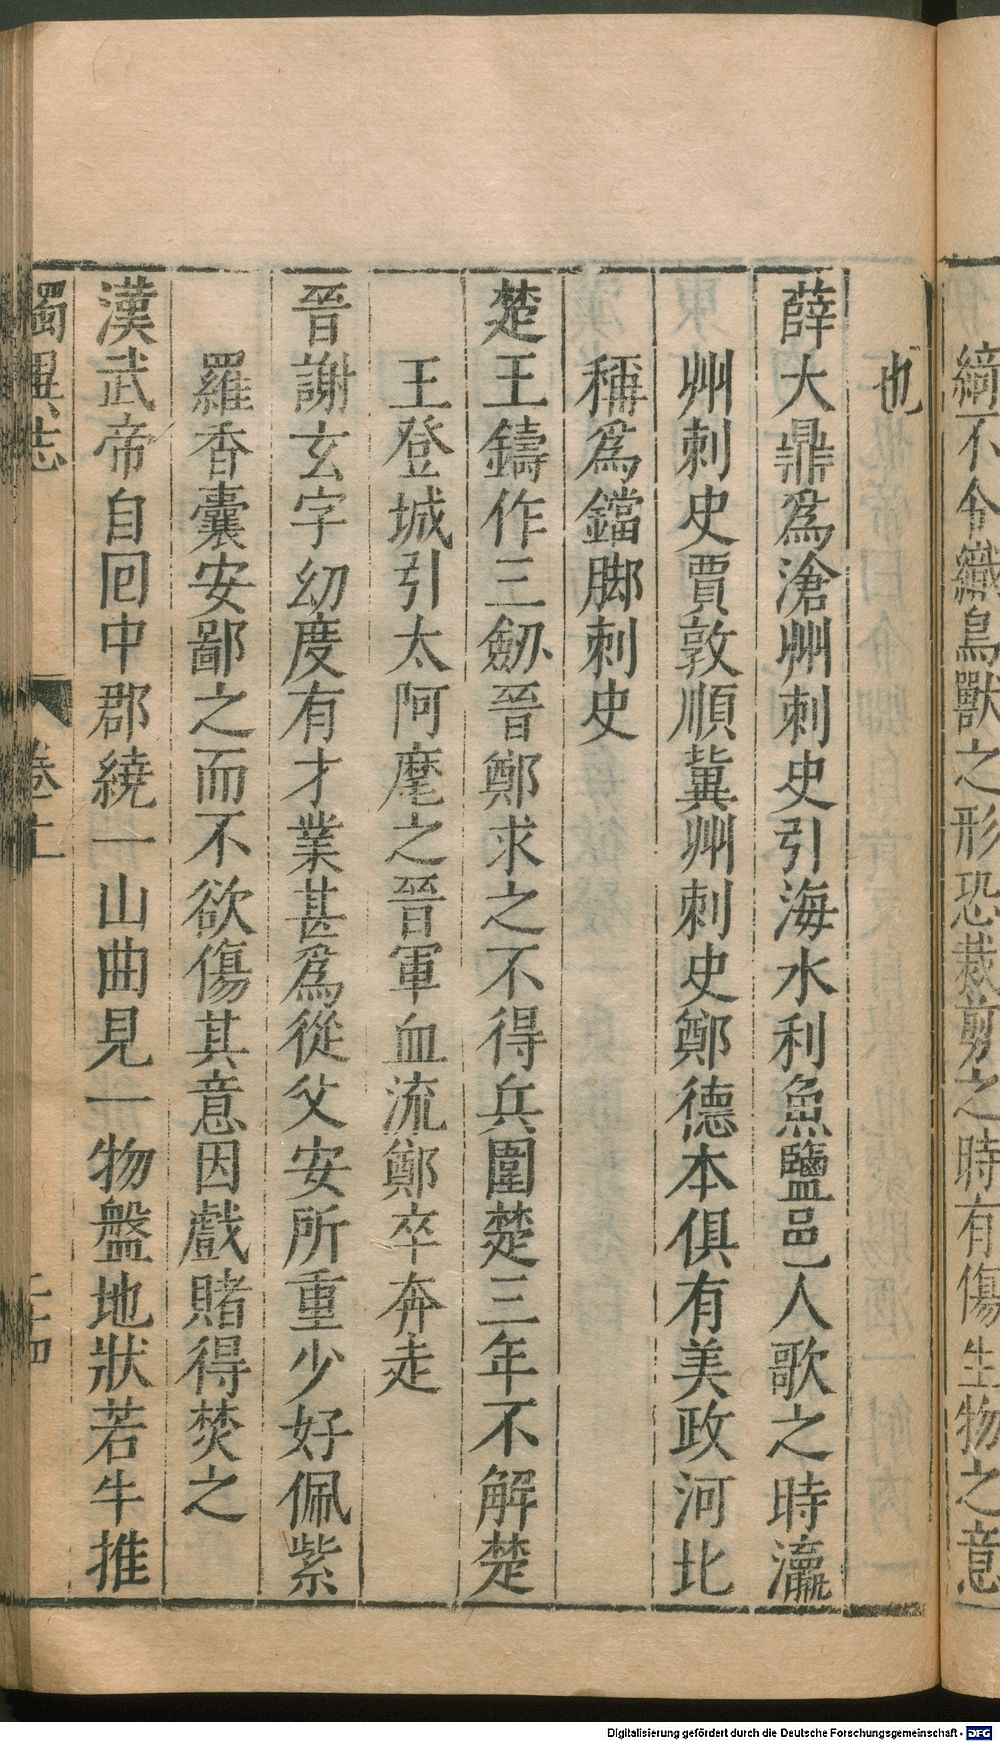 綺不令織鳥獸之形恐裁剪之時有傷生物之意
也
薛大鼎爲滄州刺史引海水利魚鹽邑人歌之時瀛
州刺史賈敦順冀州刺史鄭德本俱有美政河北
稱爲鐺脚刺史
楚王鑄作三劔晉鄭求之不得兵圍楚三年不解楚
王登城引太阿麾之晉軍血流鄭卒奔走
晉謝玄字幼度有才業甚爲從父安所重少好佩紫
羅香囊安鄙之而不欲傷其意因戲賭得焚之
漢武帝自回中郡繞一山曲見一物盤地狀若牛推
獨異志 卷上 二十四
Digitalisierung gefördert durch die Deutsche Forschungsgemeinschaft - DFG